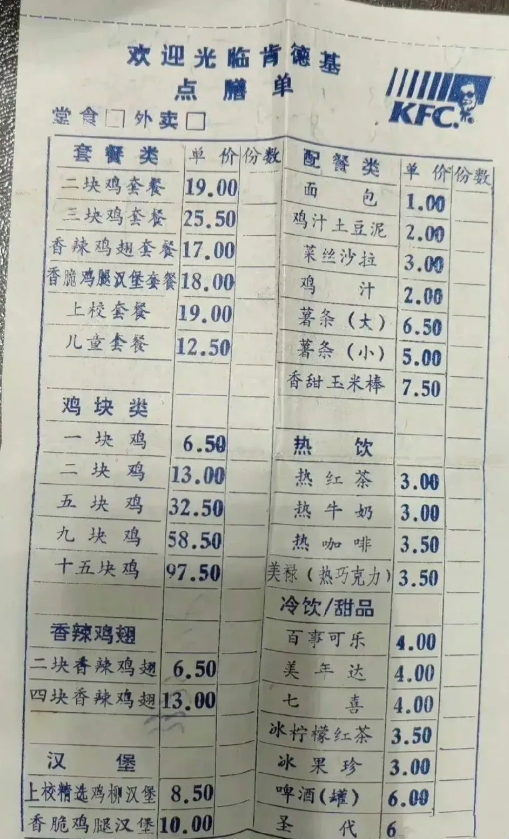 欢迎光临肯德基
点膳单
KFC.
堂食□外卖□
套餐类 单价 份数
二块鸡套餐 19.00
三块鸡套餐 25.50
香辣鸡翅套餐 17.00
香脆鸡腿汉堡套餐 18.00
上校套餐 19.00
儿童套餐 12.50
鸡块类
一块鸡 6.50
二块鸡 13.00
五块鸡 32.50
九块鸡 58.50
十五块鸡 97.50
香辣鸡翅
二块香辣鸡翅 6.50
四块香辣鸡翅 13.00
汉堡
上校精选鸡柳汉堡 8.50
香脆鸡腿汉堡 10.00
配餐类 单价 份数
面包 1.00
鸡汁土豆泥 2.00
菜丝沙拉 3.00
鸡汁 2.00
薯条(大) 6.50
薯条(小) 5.00
香甜玉米棒 7.50
热饮
热红茶 3.00
热牛奶 3.00
热咖啡 3.50
美禄(热巧克力) 3.50
冷饮/甜品
百事可乐 4.00
美年达 4.00
七喜 4.00
冰柠檬红茶 3.50
冰果珍 3.00
啤酒(罐) 6.00
圣代 6